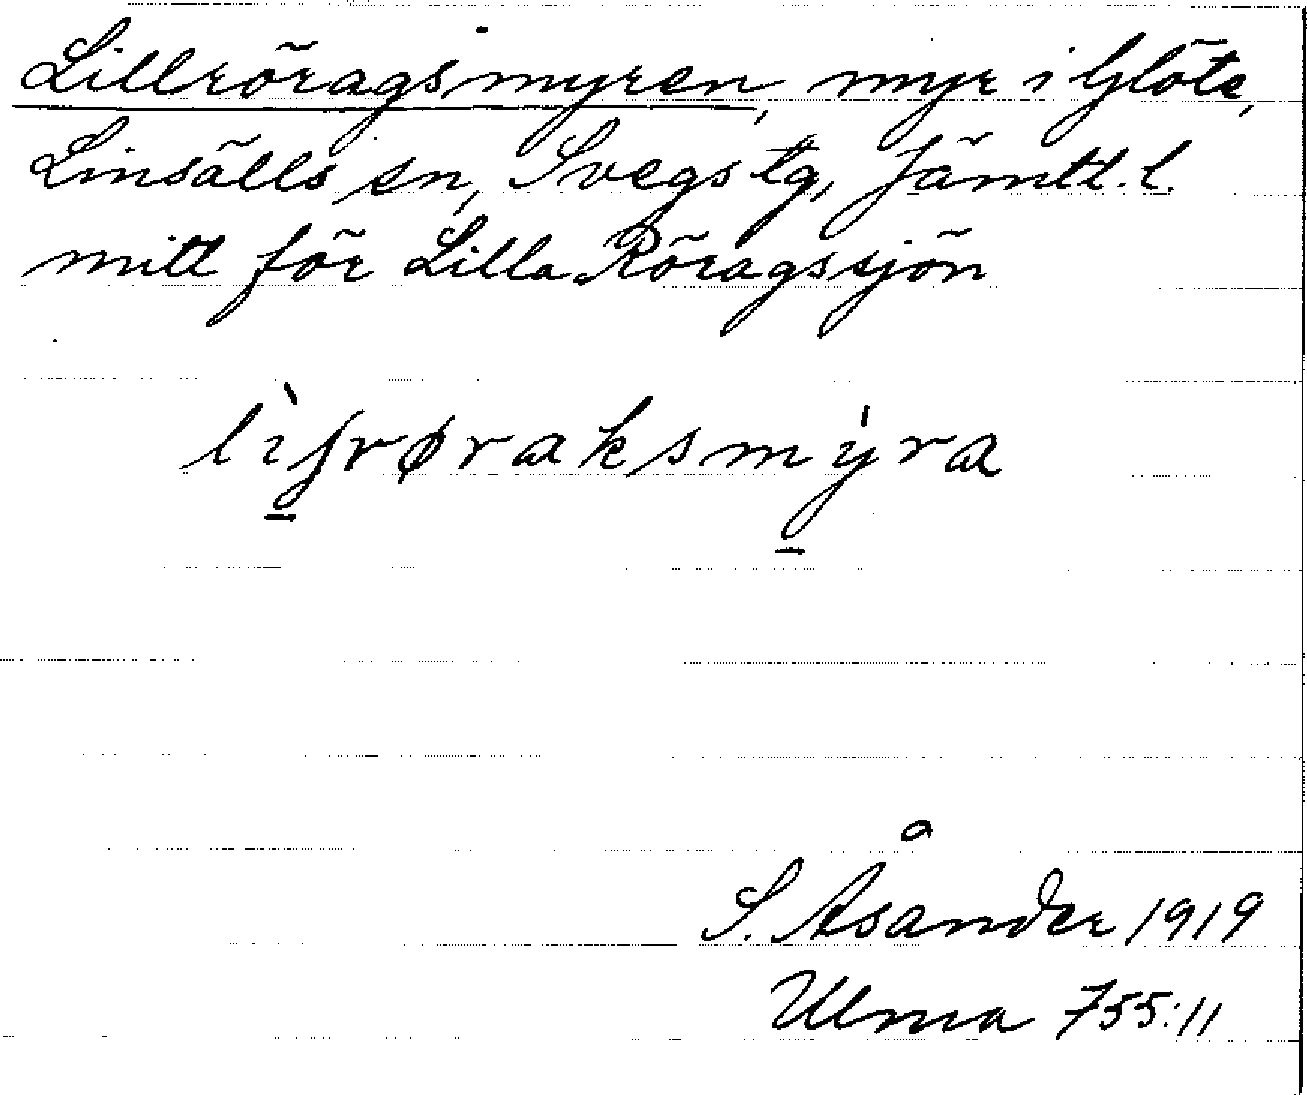 Lillröragsmyren, myr i Glöte,
Linsälls sn, Svegs tg, Jämtl. l.
mitt för Lilla Röragssjön
S. Åsander 1919
Ulma 755:11